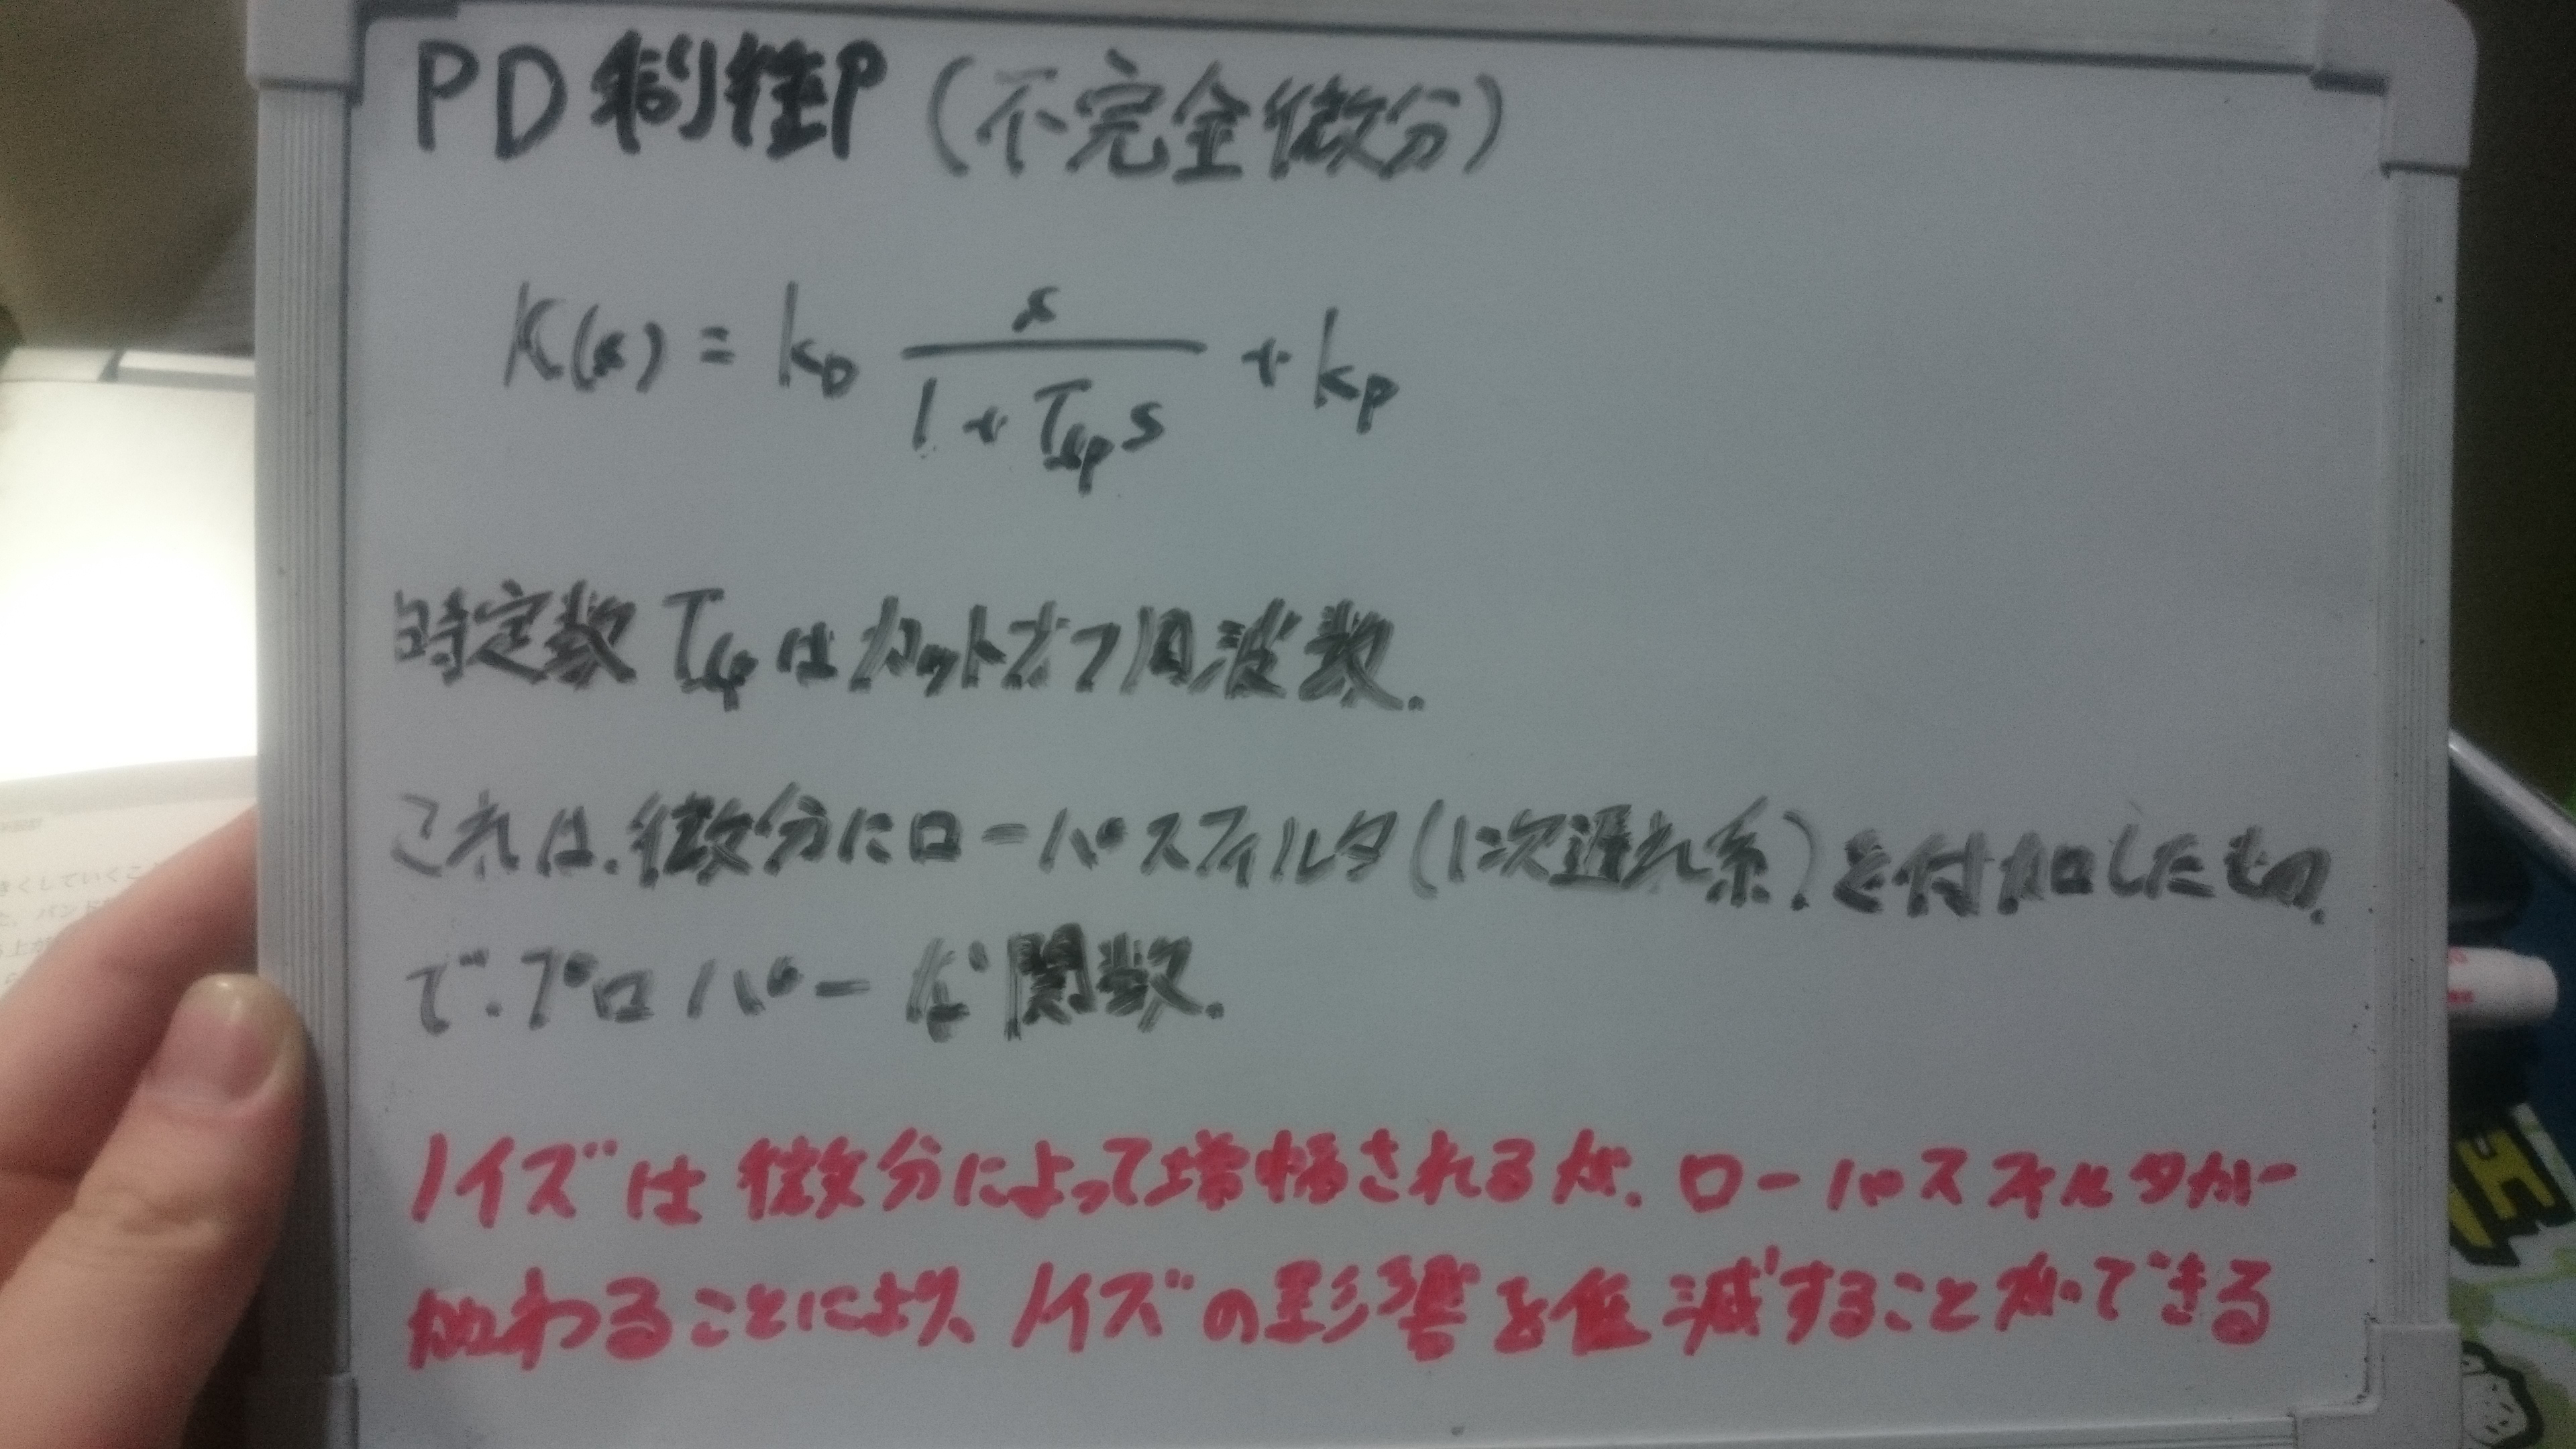 PD制御（不完全微分）
K(s) = kD s / (1 + Tlp s) + kP
時定数Tlpはカットオフ周波数.
これは.微分にローパスフィルタ(1次遅れ系)を付加したもの.
で.プロパーな関数.
ノイズは微分によって増幅されるが.ローパスフィルタが
加わることにより、ノイズの影響を低減することができる
きくしていくこ